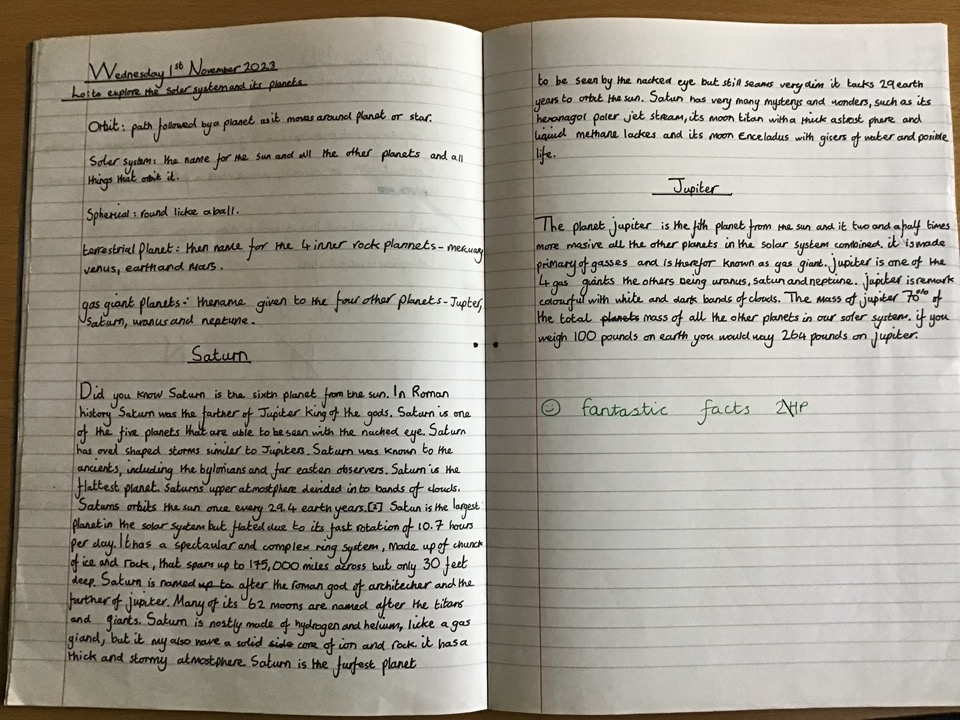 Wednesday 1st November 2023
Lo: to explore the soler system and its planets.
Orbit: path followed by a planet as it moves around planet or star.
Soler system: the name for the sun and all the other planets and all
things that orbit it.
Spherical: round licke a ball.
terrestrial planet: then name for the 4 inner rock plannets - mercuary
venus, earth and Mars.
gas giant planets: the name given to the four other planets - Jupter,
Saturn, uranus and neptune.
Saturn
Did you know Saturn is the sixth planet from the sun. In Roman
history Saturn was the farther of Jupiter king of the gods. Saturn is one
of the five planets that are able to be seen with the nacked eye. Saturn
has ovel shaped storms similer to Jupiters. Saturn was known to the
ancients, including the bylonians and far eastern observers. Saturn is the
flattest planet. Saturns upper atmosthere devided in to bands of clouds.
Saturns orbits the sun once every 29.4 earth years.[2] Satun is the largest
planet in the solar system but flated due to its fast rotation of 10.7 hours
per day. It has a spectaular and complex ring system, made up of chunck
of ice and rock, that spans up to 175,000 miles across but only 30 feet
deep. Saturn is named up to after the roman god of architecher and the
farther of jupiter. Many of its 62 moons are named after the titans
and giants. Saturn is mostly made of hydrogen and helium, licke a gas
giand, but it my also have a solid side core of ion and rock. it has a
thick and stormy atmosthere. Saturn is the furfest planet
to be seen by the nacked eye but still seams very dim it tacks 29 earth
years to orbit the sun. Satun has very many mysterys and wonders, such as its
hexanagol poler jet stream, its moon titan with a thick astrost phere and
liquid methane lackes and its moon Enceladus with gisers of water and posible
life.
Jupiter
The planet jupiter is the fith planet from the sun and it two and a half times
more masive all the other planets in the solar system combined. it is made
primary of gasses and is therefor known as gas giant. jupiter is one of the
4 gas giants the others being uranus, satun and neptune. jupiter is remark
colourful with white and dark bands of clouds. The mass of jupiter 70% of
the total planets mass of all the other planets in our soler system. if you
weigh 100 pounds on earth you would way 264 pounds on jupiter.
fantastic facts 2HP